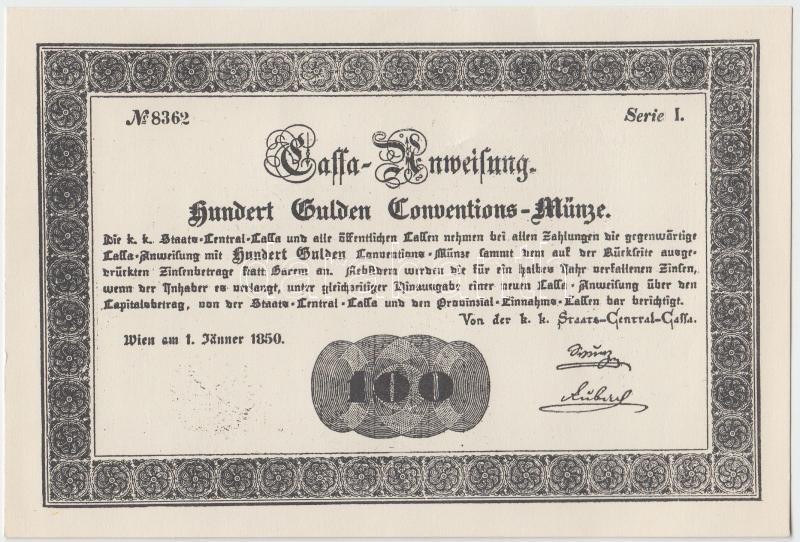 № 8362
Serie I.
Cassa-Anweisung.
Hundert Gulden Conventions-Münze.
Die k. k. Staats-Central-Cassa und alle öffentlichen Cassen nehmen bei allen Zahlungen die gegenwärtige
Cassa-Anweisung mit Hundert Gulden Conventions-Münze sammt dem auf der Rückseite ausge-
drückten Zinsenbetrage statt Barem an. Nebstdem werden die für ein halbes Jahr verfallenen Zinsen,
wenn der Inhaber es verlangt, unter gleichzeitiger Hinausgabe einer neuen Cassa-Anweisung über den
Capitalsbetrag, von der Staats-Central-Cassa und den Provinzial-Einnahms-Cassen bar berichtigt.
Von der k. k. Staats-Central-Cassa.
Wien am 1. Jänner 1850.
100